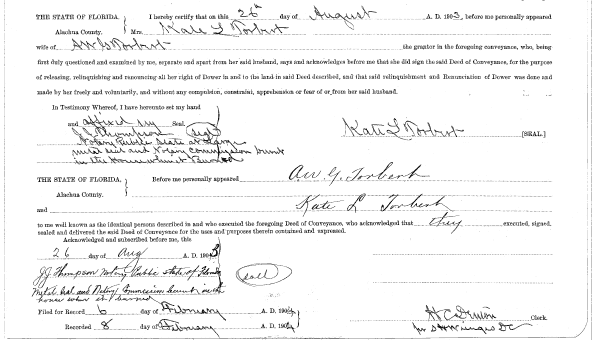 THE STATE OF FLORIDA. I hereby certify that on this 26th day of August A. D. 1903, before me personally appeared
Alachua County. Mrs. Kate L Torbert
wife of the grantor in the foregoing conveyance, who, being
first duly questioned and examined by me, separate and apart from her said husband, says and acknowledges before me that she did sign the said Deed of Conveyance, for the purpose
of releasing, relinquishing and renouncing all her right of Dower in and to the land in said Deed described, and that said relinquishment and Renunciation of Dower was done and
made by her freely and voluntarily, and without any compulsion, constraint, apprehension or fear of or from her said husband.
In Testimony Whereof, I have hereunto set my hand
and affixed my Seal
J J Thompson Seal Kate L Torbert [SEAL.]
Notary Public State at Large
metal seal and Notary Commission burnt
in the house when it burned
THE STATE OF FLORIDA. Before me personally appeared G. Torbert
Alachua County.
and Kate L Torbert
to me well known as the identical persons described in and who executed the foregoing Deed of Conveyance, who acknowledged that they executed, signed,
sealed and delivered the said Deed of Conveyance for the uses and purposes therein contained and expressed.
Acknowledged and subscribed before me, this
26 day of Aug A. D. 1903
JJ Thompson Notary Public State of Florida
Metal Seal and Notary Commission burnt in the seal
house when it burned
Filed for Record 6 day of February 190 Clerk.
Recorded 8 day of February 190